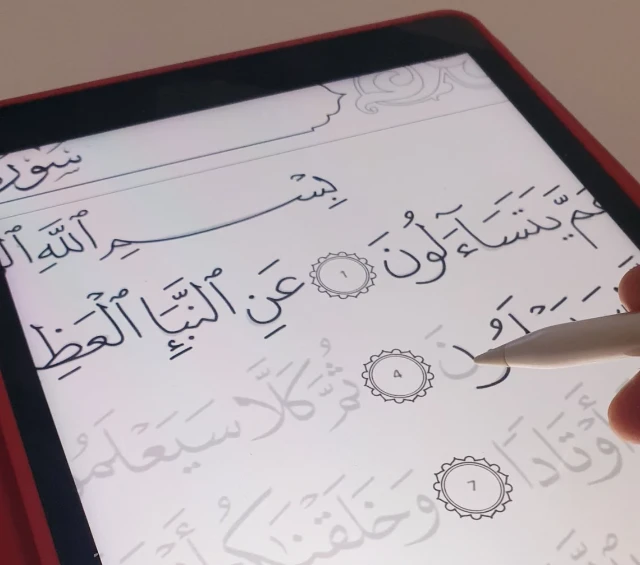 سُورَ
بِسْمِ ٱللَّهِ ٱل
عَمَّ يَتَسَآءَلُونَ 1 عَنِ ٱلنَّبَإِ ٱلْعَظِ
4 ثُمَّ كَلَّا سَيَعْلَمُ
أَوْتَادًا 7 وَخَلَقْنَٰكُمْ